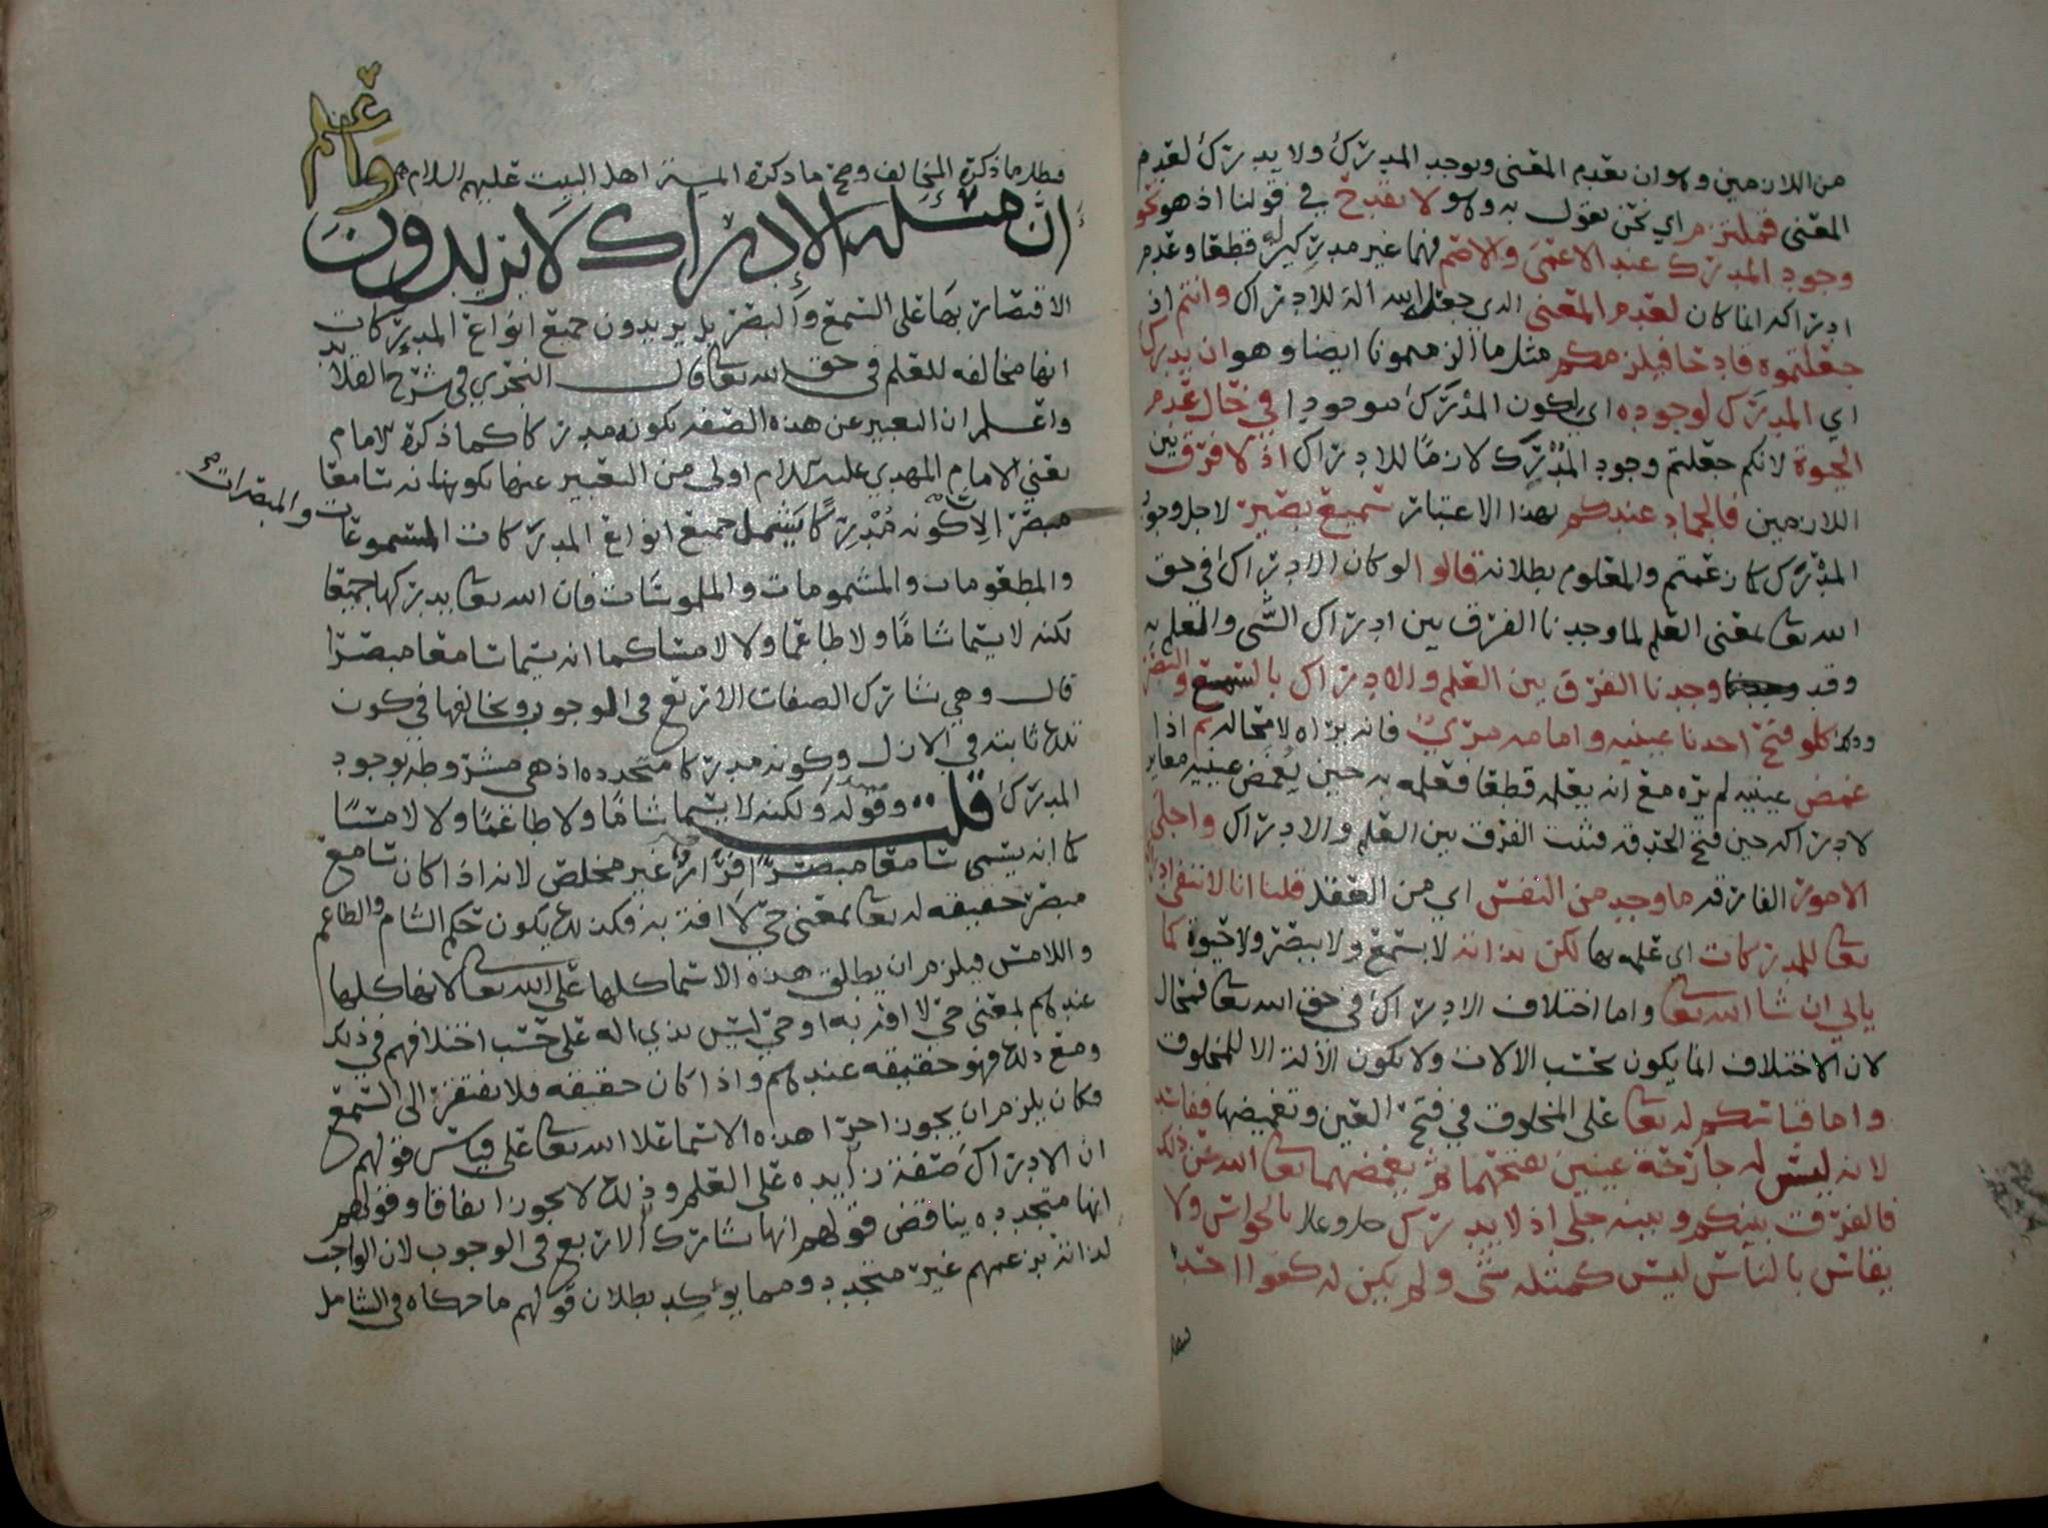 من اللازمين وهو ان يقدم المعنى ويوجد المدرك ولا يدرك لعدم
المعنى فملتزم اي نحن نقول به وهو لا يقدح في قولنا اذ هو نحو
وجود المدرك عند الاعمى والاصم فهما غير مدركين له قطعا وعدم
ادراكه انما كان لعدم المعنى الذي جعله الله الة للادراك وانتم اذ
جعلتموه قادحا فيلزمكم مثل ما الزمتمونا ايضا وهو ان يدرك
اي المدرك لوجوده اي لكون المدرك موجودا في حال عدم
الحيوة لانكم جعلتم وجود المدرك لازما للادراك اذ لا فرق بين
اللازمين فالجماد عندكم بهذا الاعتبار سميع بصير لاجل وجود
المدرك كما زعمتم والمعلوم بطلانه قالوا لو كان الادراك في حق
الله تعالى بمعنى العلم لما وجدنا الفرق بين ادراك الشي والعلم به
وقد وجدنا الفرق بين العلم والادراك بالسمع والبصر
وذلك كلو فتح احدنا عينيه وامامه مرئي فانه يراه لا محالة ثم اذا
غمض عينيه لم يره مع انه يعلمه قطعا فعلمه به حين يغمض عينيه مغاير
لادراكه حين فتح الحدقه فثبت الفرق بين العلم والادراك واجلى
الامور الفارقه ما وجد من النفس اي من العقل قلنا انا لا ننفي ادراك
تعالى للمدركات اي علمه بها لكن بذاته لا بسمع ولا ببصر ولا حيوة كما
ياتي ان شا الله تعالى واما اختلاف الادراك في حق الله تعالى فمحال
لان الاختلاف انما يكون بحسب الالات ولا تكون الالة الا للمخلوق
واما قياسكم له تعالى على المخلوق في فتح العين وتغميضها ففاسد
لانه ليس له جارحة عينين يفتحهما ثم يغمضهما تعالى الله عن ذلك
فالفرق بينكم وبينه جلي اذ لا يدرك جل وعلا بالحواس ولا
يقاس بالناس ليس كمثله شي ولم يكن له كفوا احد
فبطل
فبطل ما ذكره المخالف وصح ما ذكره ائمة اهل البيت عليهم السلام
واعلم
ان مسئلة الإدراك لا يريدون
الاقتصار بها على السمع والبصر بل يريدون جميع انواع المدركات
انها مخالفه للعلم في حق الله تعالى قال النجري في شرح القلائد
واعلم ان التعبير عن هذه الصفه بكونه مدركا كما ذكره الامام
يعني الامام المهدي عليه السلام اولى من التعبير عنها بكونه سامعا
مبصرا لان كونه مدركا يشمل جميع انواع المدركات المسموعات
والمبصرات
والمطعومات والمشمومات والملموسات فان الله تعالى يدركها جميعا
لكنه لا يسما شاما ولا طاعما ولا لامسا كما انه يسما سامعا مبصرا
قال وهي تشارك الصفات الاربع في الوجوب وتخالفها في كون
تلك ثابته في الازل وكونه مدركا متجدده اذ هي مشروطه بوجود
المدرك قلت وقوله ولكنه لا يسما شاما ولا طاعما ولا لامسا
كما انه يسمى سامعا مبصرا فرار غير مخلص لانه اذا كان سامع
مبصر حقيقه له تعالى بمعنى حي لا افة به فكذلك يكون حكم الشام والطاعم
واللامس فيلزم ان يطلق هذه الاسما كلها على الله تعالى لانها كلها
عندهم بمعنى حي لا افة به او حي ليس بذي اله على حسب اختلافهم في ذلك
ومع ذلك فهو حقيقه عندهم واذا كان حقيقه فلا يفتقر الى السمع
فكان يلزم ان يجوز اجرا هذه الاسما على الله تعالى على قياس قولهم
ان الادراك صفة زايده على العلم وذلك لا يجوز اتفاقا وقولهم
انها متجدده يناقض قولهم انها تشارك الاربع في الوجوب لان الواجب
لذاته بزعمهم غير متجدد ومما يؤكد بطلان قولهم ما حكاه في الشامل